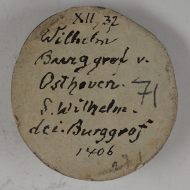 XII, 32
Wilhelm
Burggraf v.
Osthoven.
71
S. Wilhelm.
dei. Burggrof
1406